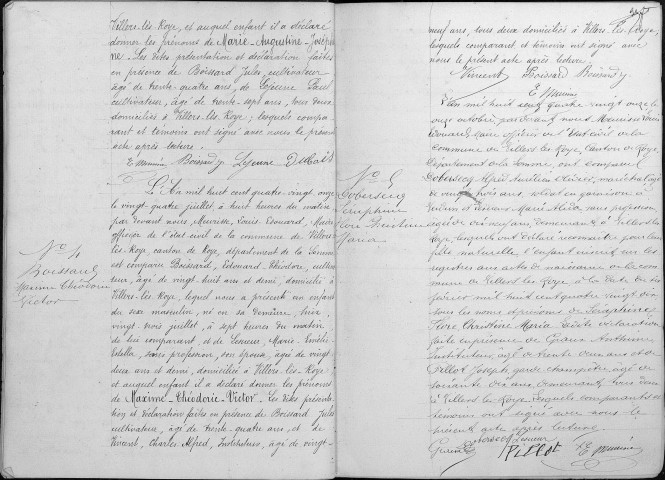 Villers-lès-Roye, et auquel enfant il a déclaré
donner les prénoms de Marie-Augustine-Joséphi
ne. Les dites présentation et déclaration faites
en présence de Boissard Jules, cultivateur
âgé de trente-quatre ans, de Lejeune Paul
cultivateur, âgé de trente-sept ans, tous deux
domiciliés à Villers-lès-Roye; lesquels compa-
rant et témoins ont signé avec nous le présent
acte après lecture.
E Boissard Lejeune
No 4
Boissard
Maxime Théodoric
Victor
L'An mil huit cent quatre-vingt onze
le vingt-quatre juillet à huit heures du matin
par devant nous, Louis Edouard, Maire
officier de l'état civil de la commune de Villers-
lès-Roye, canton de Roye, département de la Somme
est comparu Boissard, Edouard-Théodore, cultiva
teur, âgé de vingt-huit ans et demi, domicilié à
Villers-lès-Roye, lequel nous a présenté un enfant
du sexe masculin, né en sa demeure, hier
vingt-trois juillet, à sept heures du matin
de lui comparant, et de Marie-
Estella, sans profession, son épouse, âgée de vingt-
deux ans et demi, domiciliée à Villers-lès-Roye;
et auquel enfant il a déclaré donner les prénoms
de Maxime-Théodoric-Victor. Les dites présenta-
tion et déclaration faites en présence de Boissard Jules
cultivateur, âgé de trente-quatre ans, et de
Vincent, Charles Alfred, Instituteur, âgé de vingt-
neuf ans, tous deux domiciliés à Villers-lès-Roye,
lesquels comparant et témoins ont signé avec
nous le présent acte après lecture.
Vincent Boissard
E
No 5
Séraphine
Flore Christine
Maria
L'an mil huit cent quatre vingt onze le
onze octobre, par devant nous Louis
Edouard, maire officier de l'Etat civil de la
commune de Villers les Roye, canton de Roye,
Département de la Somme, ont comparu
Alfred Aurélien
de vingt trois ans, soldat en garnison à
et Marie sans profession
âgée de dix neuf ans, demeurant à Villers les
Roye, lesquels ont déclaré reconnaître pour leur
fille naturelle, l'enfant inscrit sur les
registres aux actes de naissance de la com
mune de Villers les Roye à la date du
février mil huit cent quatre vingt dix
sous les noms et prénoms de Séraphine
Flore Christine Maria. La dite déclaration
faite en présence de Anthime
Instituteur, âgé de trente deux ans et de
Pillot Joseph, garde champêtre, âgé de
soixante dix ans, demeurant tous deux
à Villers les Roye. Lesquels comparants et
témoins ont signé avec nous le
présent acte après lecture.
Pillot E